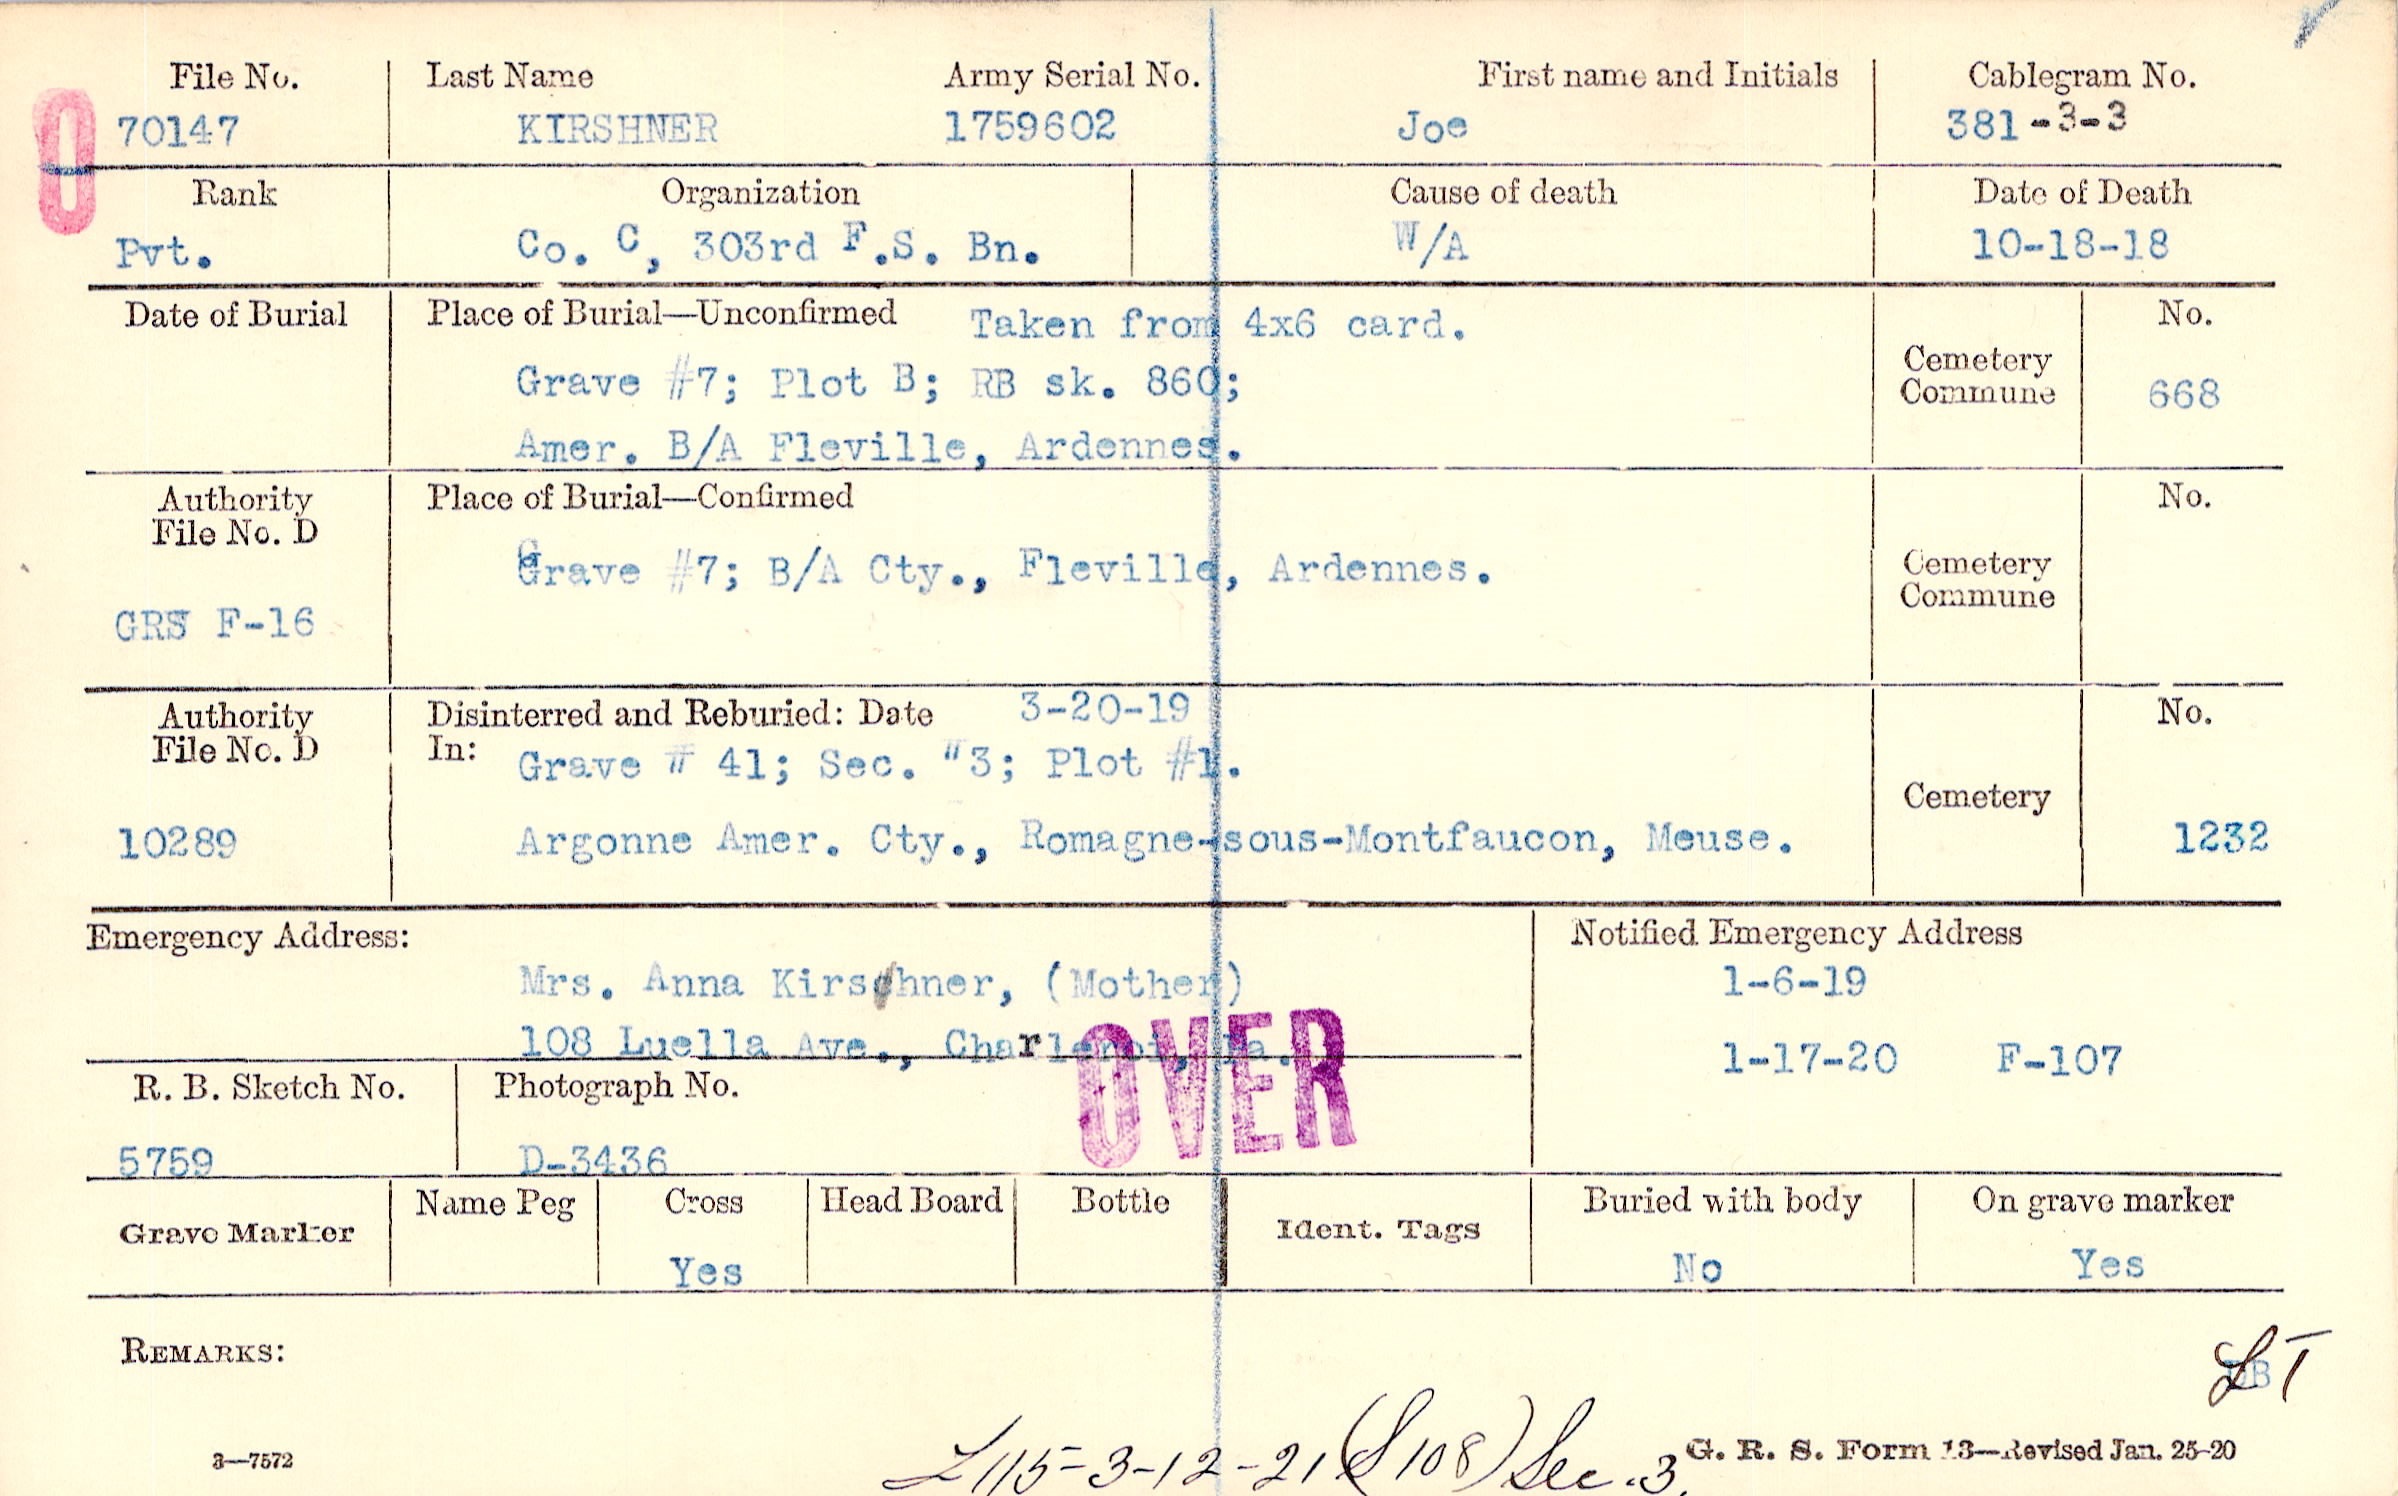 File No. Last Name Army Serial No. First name and Initials Cablegram No.
70147 KIRSHNER 1759602 Joe 381-3-3
Rank Organization Cause of death Date of Death
Pvt. Co. C, 303rd F.S. Bn. W/A 10-18-18
Date of Burial Place of Burial—Unconfirmed Taken from 4x6 card. No.
Grave #7; Plot B; RB sk. 860; Cemetery Commune 668
Amer. B/A Fleville, Ardennes.
Authority File No. D Place of Burial—Confirmed No.
Grave #7; B/A Cty., Fleville, Ardennes. Cemetery Commune
GRS F-16
Authority File No. D Disinterred and Reburied: Date 3-20-19 No.
In: Grave # 41; Sec. "3; Plot #1. Cemetery
10289 Argonne Amer. Cty., Romagne-sous-Montfaucon, Meuse. 1232
Emergency Address: Notified Emergency Address
Mrs. Anna Kirshner, (Mother) 1-6-19
108 Luella Ave., Charleroi, Pa. 1-17-20 F-107
OVER
R. B. Sketch No. Photograph No.
5759 D-3436
Grave Marker Name Peg Cross Head Board Bottle Ident. Tags Buried with body On grave marker
Yes No Yes
REMARKS:
3—7572 L115-3-12-21 (S108) Sec. 3. G. R. S. Form 13—Revised Jan. 25-20